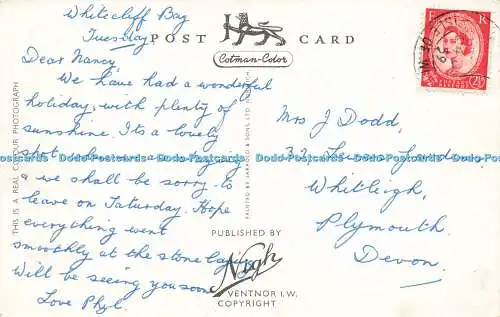 Whitecliff Bay
Tuesday
POST CARD
Cotman-Color
Dear Nancy,
We have had a wonderful
holiday, with plenty of
sunshine. It's a lovely
spot
& we shall be sorry to
leave on Saturday. Hope
everything went
smoothly at the stone laying
Will be seeing you soon
Love Phyl.
THIS IS A REAL COLOUR PHOTOGRAPH
PRINTED BY JARROLD & SONS LTD. NORWICH
PUBLISHED BY
Nigh
VENTNOR I.W.
COPYRIGHT
Mrs J Dodd,
32
Whitleigh,
Plymouth.
Devon.
Dodo-Postcards Dodo-Postcards Dodo-Postcards Dodo-Postcards Dodo-Postcards Dodo-Postcards
F R
2½